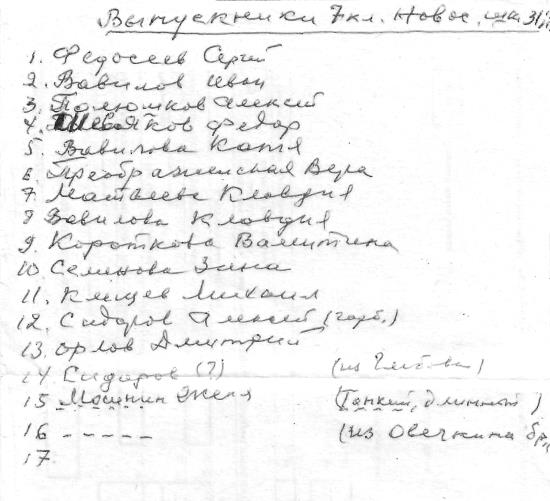 Выпускники 7кл. Новос. шк. 31
1. Федосеев Сергей
2. Вавилов Иван
3. Полюмков Алексей
4. Федор
5. Вавилова Катя
6. Преображенская Вера
7. Матвеева Клавдия
8 Вавилова Клавдия
9. Короткова Валентина
10 Семенова Зина
11. Михаил
12. Сидоров Алексей (горб.)
13. Орлов Дмитрий
14 Сидоров (?) (из Глебова)
15 Женя (Тонкий, длинный)
16 - - - - - (из Овечкина бр.
17